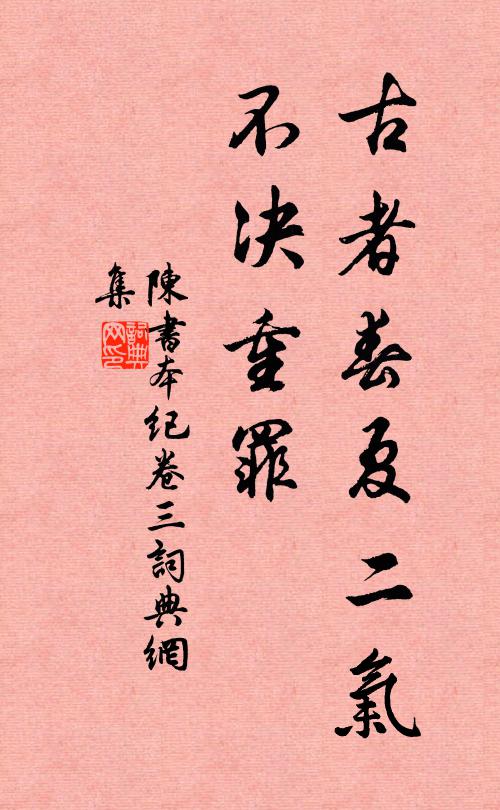 古者春夏二氣
不決重罪
陳書本紀卷三詞典網
集
詞典網印